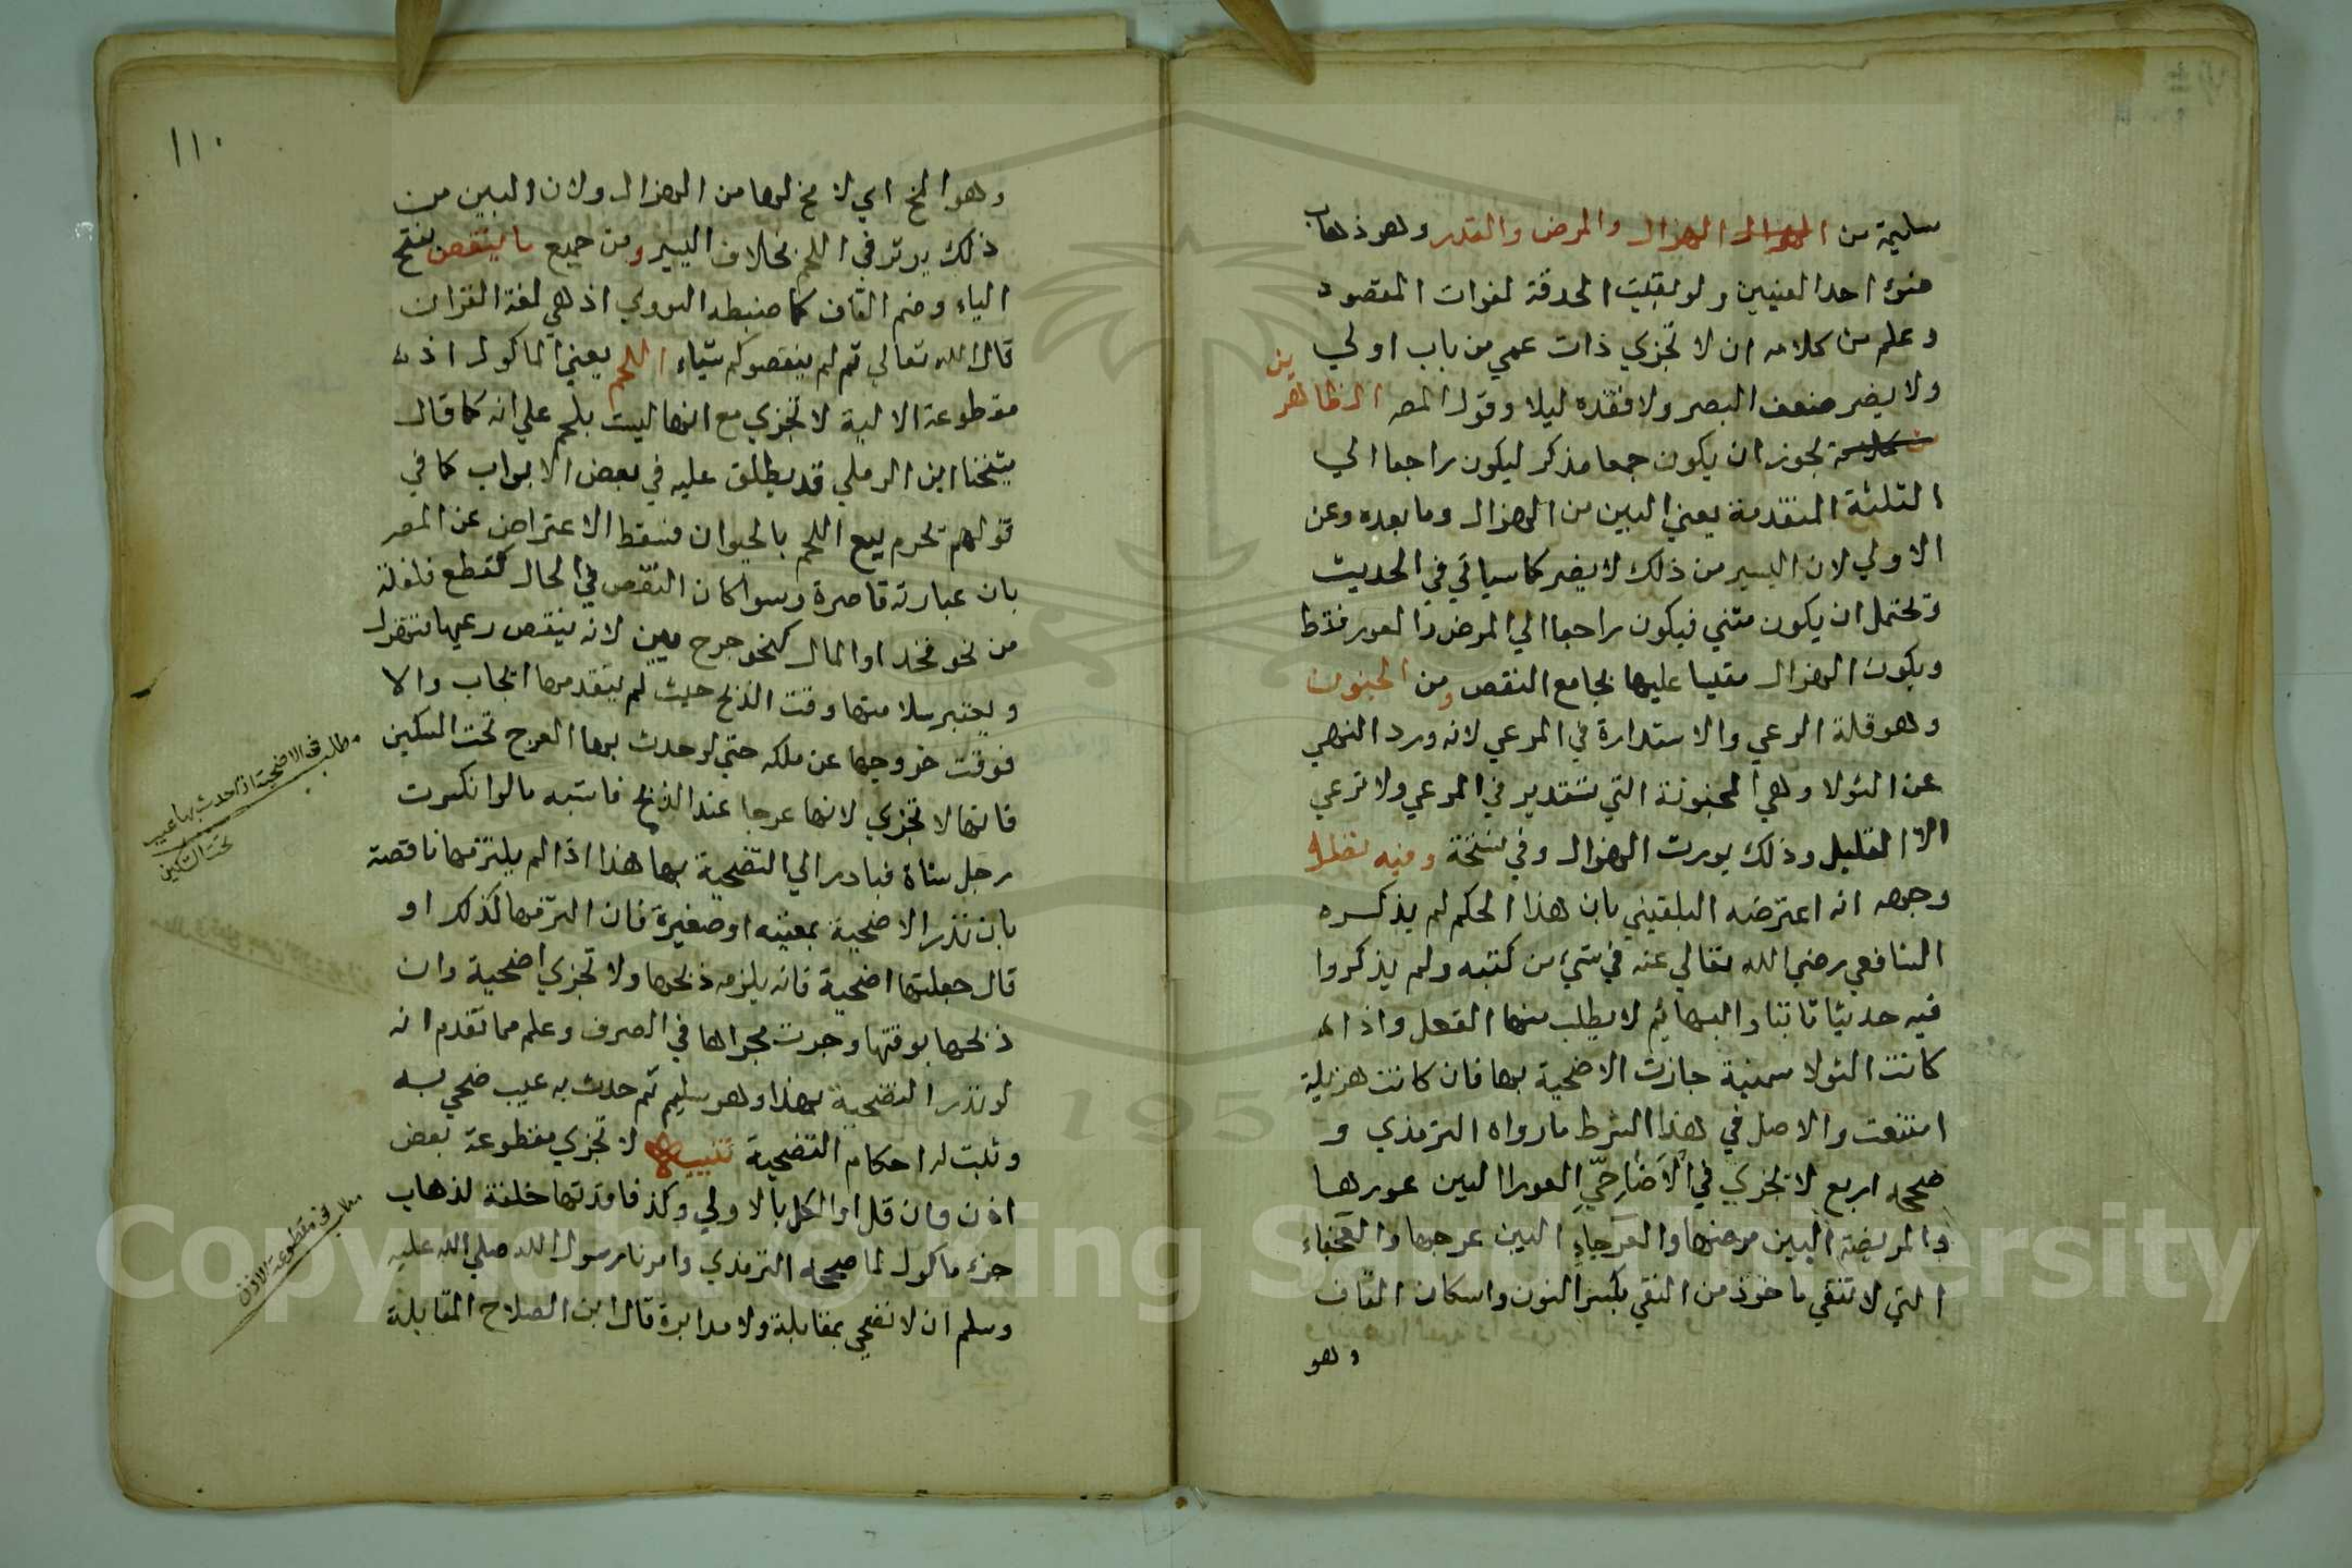 سليمة من الهزال الهزال والمرض والعور وهو ذهاب
ضوء احد العينين ولو بقيت الحدقة لفوات المقصود
وعلم من كلامه ان لا تجزي ذات عمي من باب اولي
ولا يضر ضعف البصر ولا فقده ليلا وقول المصـ الظاهر
ين
يجوز ان يكون جمعا مذكر ليكون راجعا الي
الثلثة المتقدمة يعني البين من الهزال وما بعده وعن
الاولي لان اليسير من ذلك لا يضر كما سياتي في الحديث
وتحتمل ان يكون مثني فيكون راجعا الي المرض والعور فقط
ويكون الهزال مقيسا عليها بجامع النقص ومن الجنون
وهو قلة الرعي والاستدارة في المرعي لانه ورد النهي
عن الثولا وهي المجنونة التي تستدير في المرعي ولا ترعي
الا القليل وذلك يورث الهزال وفي نسخة وفيه نظر
وجهه انه اعترضه البلقيني بان هذا الحكم لم يذكره
الشافعي رضي الله تعالي عنه في شيء من كتبه ولم يذكروا
فيه حديثا ثابتا والبهائم لا يطلب منها العقل واذا
كانت الثولا سمينة جازت الاضحية بها فان كانت هزيلة
امتنعت والاصل في هذا الشرط ما رواه الترمذي و
صححه اربع لا تجزي في الاضاحي العورا البين عورها
والمريضة البين مرضها والعرجاء البين عرجها والعجفاء
التي لا تنقي ماخوذ من النقي بكسر النون واسكان القاف
وهو
١١٠
وهو المخ اي لا مخ لها من الهزال ولان البين من
ذلك يوثر في اللحم بخلاف اليسير ومن جميع ما ينقص بفتح
الياء وضم القاف كما ضبطه النووي اذ هي لغة القران
قال الله تعالي ثم لم ينقصوكم شيئاء اللحم يعني الماكول اذ
مقطوعة الالية لا تجزي مع انها ليست بلحم علي انه كما قال
شيخنا ابن الرملي قد يطلق عليه في بعض الابواب كما في
قولهم تحرم بيع اللحم بالحيوان فسقط الاعتراض عن المصـ
بان عبارته قاصرة وسوا كان النقص في الحال كقطع فلقلة
من نحو فخذ او المال كنحو جرج بين لانه ينقص رعيها فتهزل
ويعتبر سلامتها وقت الذبح حيث لم يتقدمها ايجاب والا
فوقت خروجها عن ملكه حتي لو حدث بها العرج تحت السكين
فانها لا تجزي لانها عرجا عند الذبح فاشبه ما لو انكسرت
رجل شاة فبادر الي التضحية بها هذا اذا لم يلتزمها ناقصة
بان نذر الاضحية بمعيبه او صغيرة فان التزمها كذلك او
قال جعلتها اضحية فانه يلزمه ذبحها ولا تجزي اضحية وان
ذبحها بوقتها وجرت مجراها في الصرف وعلم مما تقدم انه
لو نذر التضحية بهذا وهو سليم ثم حدث به عيب ضحي به
وثبت له احكام التضحية تنبيه لا تجزي مقطوعة بعض
اذن وان قل او الكل بالاولي وكذ فاقدتها خلقة لذهاب
جزء ماكول لما صححه الترمذي وامرنا رسول الله صلي الله عليه
وسلم ان لا نضحي بمقابلة ولا مدابرة قال ابن الصلاح المقابلة
مطلب في الاضحية اذا حدث بها عيب
تحت السكين
مطلب في مقطوعة الاذن
Copyright © King Saud University
195